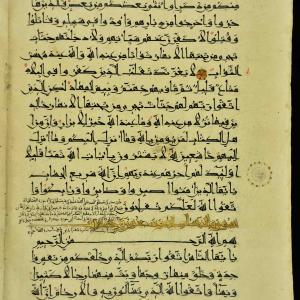 منكم من ذكر او انثى بعضكم من بعض فالذين ها
جروا واخرجوا من ديرهم واوذوا في سبيلي
وقتلوا وقتلوا لاكفرن عنهم سيئاتهم ولادخلنهم جنت
تجري من تحتها الانهر ثوابا من عند الله والله عنده حسن
الثواب لا يغرنك تقلب الذين كفروا في البلد
متاع قليل ثم ماويهم جهنم وبئس المهاد لكن الذين
اتقوا ربهم لهم جنت تجري من تحتها الانهر خلد
ين فيها نزلا من عند الله وما عند الله خير للابرار وان من
اهل الكتب لمن يؤمن بالله وما انزل اليكم وما انزل
اليهم خشعين لله لا يشترون بايت الله ثمنا قليلا
اولئك لهم اجرهم عند ربهم ان الله سريع الحساب
يايها الذين امنوا اصبروا وصابروا ورابطوا
واتقوا الله لعلكم تفلحون
بسم الله الرحمن الرحيم
يايها الناس اتقوا ربكم الذي خلقكم من نفس وا
حدة وخلق منها زوجها وبث منهما رجالا كثيرا
ونساء واتقوا الله الذي تساءلون به والارحام ان الله